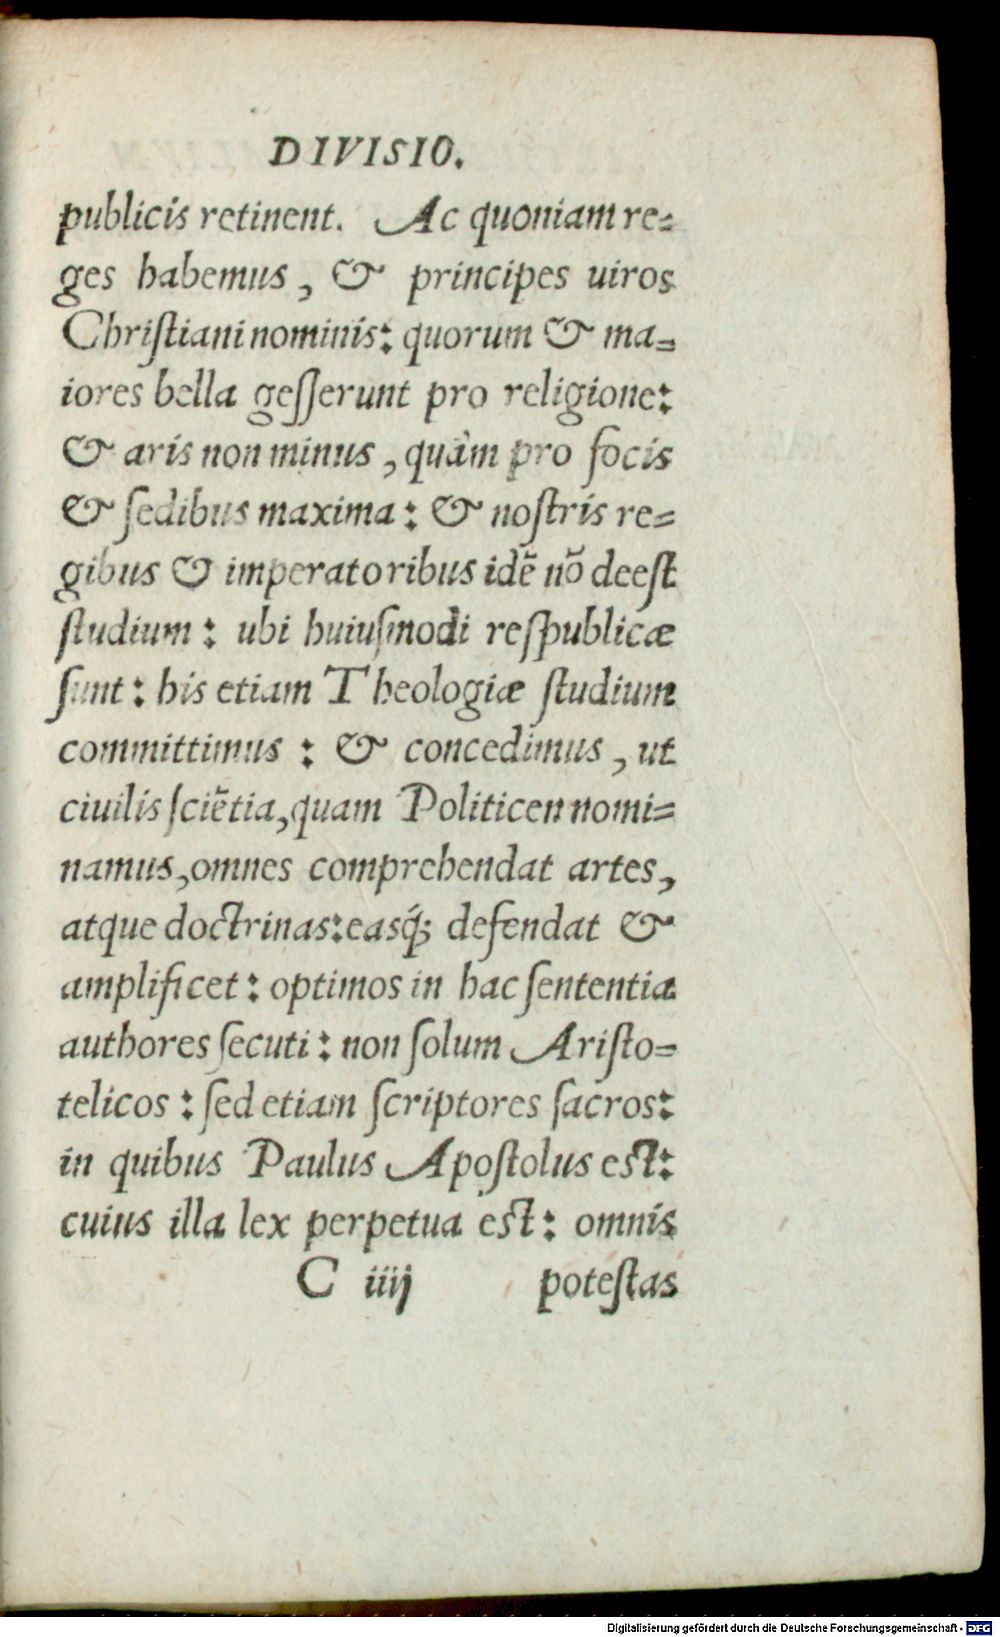 DIVISIO.
publicis retinent. Ac quoniam re=
ges habemus, & principes uiros
Chriſtiani nominis: quorum & ma=
iores bella geſſerunt pro religione:
& aris non minus, quàm pro focis
& ſedibus maxima: & noſtris re=
gibus & imperatoribus idē nō deeſt
ſtudium: ubi huiuſmodi reſpublicæ
ſunt: his etiam Theologiæ ſtudium
committimus: & concedimus, ut
ciuilis ſciētia, quam Politicen nomi=
namus, omnes comprehendat artes,
atque doctrinas: easq́; defendat &
amplificet: optimos in hac ſententia
authores ſecuti: non ſolum Ariſto=
telicos: ſed etiam ſcriptores ſacros:
in quibus Paulus Apoſtolus eſt:
cuius illa lex perpetua eſt: omnis
C iiij poteſtas
Digitalisierung gefördert durch die Deutsche Forschungsgemeinschaft - DFG